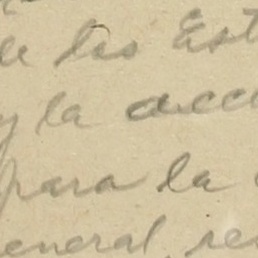 de los Est
y la acc
para la
eneral, re